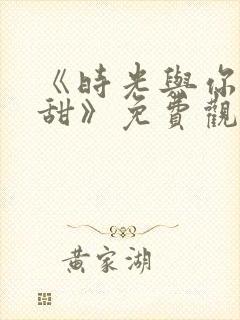 《時光與你
甜》免費觀
黃家湖